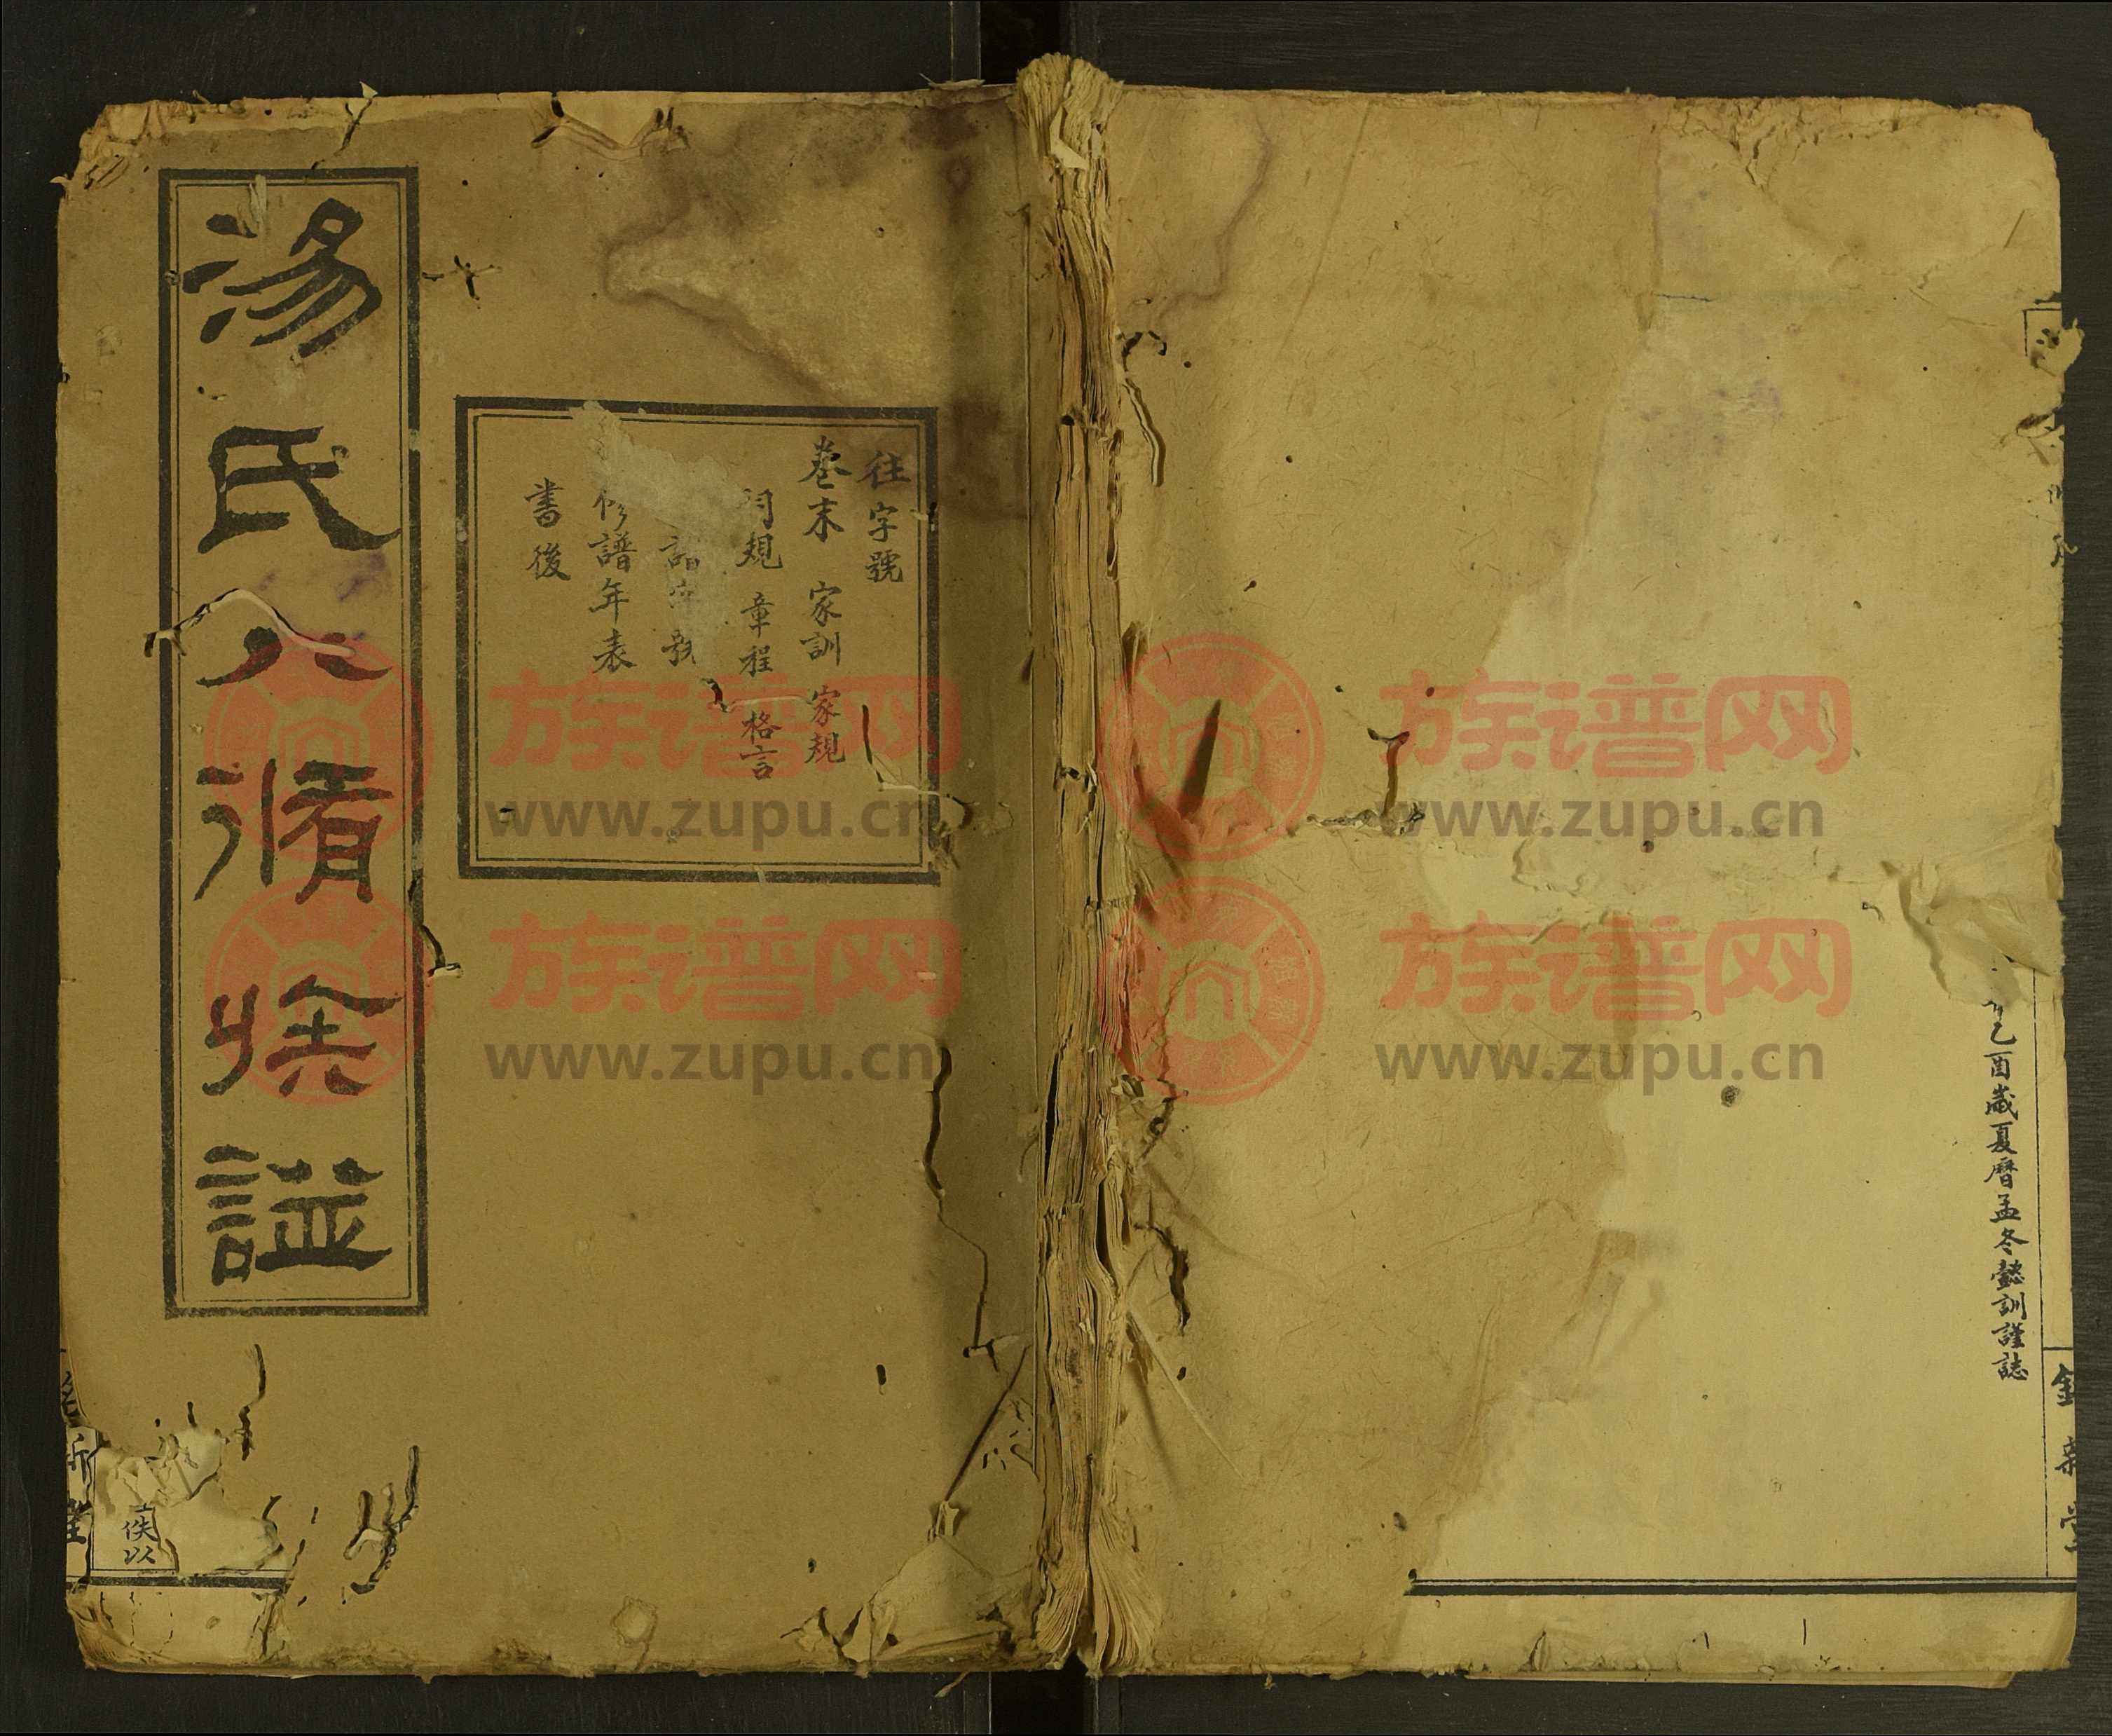 湯氏八脩族譜
往字號
卷末 家訓 家規
規 章程 格言
修譜年表
書後
乙酉歲夏曆孟冬懿訓謹誌
族谱网
www.zupu.cn
族谱网
www.zupu.cn
族谱网
www.zupu.cn
族谱网
www.zupu.cn